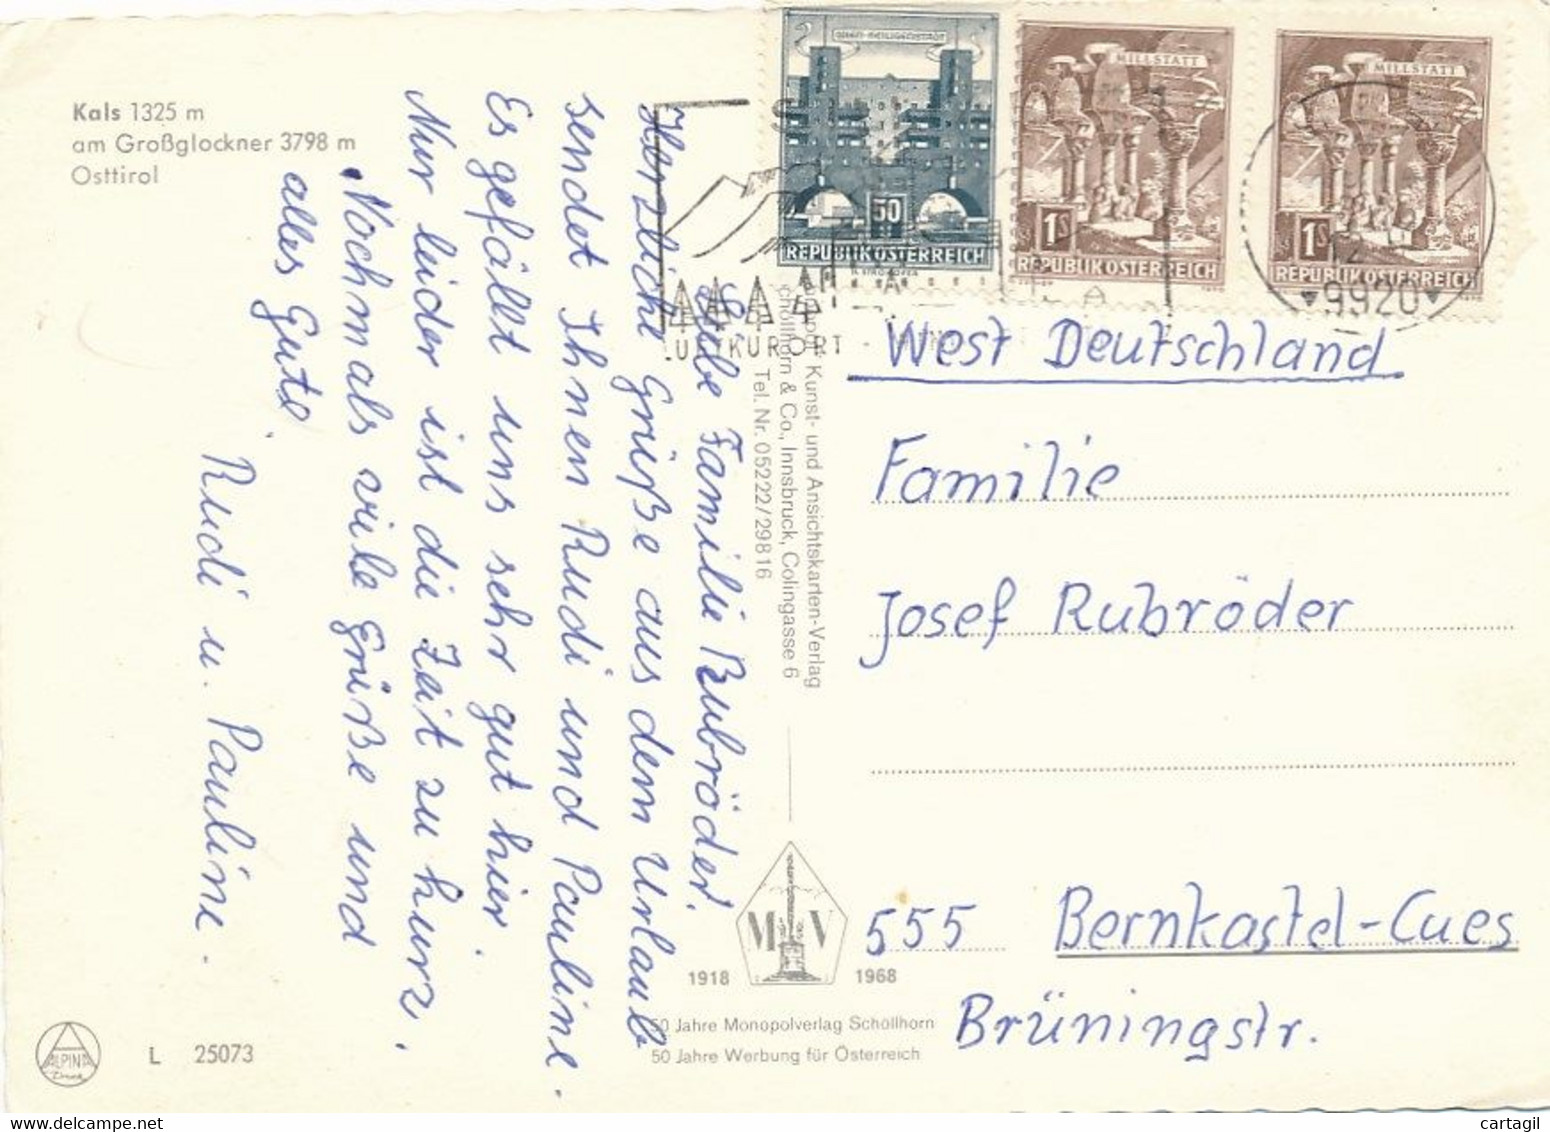 Kals 1325 m
am Großglockner 3798 m
Osttirol
Liebe Familie Rubröder.
Herzliche Grüße aus dem Urlaub
sendet Ihnen Rudi und Pauline.
Es gefällt uns sehr gut hier.
Nur leider ist die Zeit zu kurz.
Nochmals viele Grüße und
alles Gute.
Rudi u. Pauline.
WIEN-HEILIGENSTADT
50
REPUBLIK ÖSTERREICH
MILLSTATT
1S
REPUBLIK ÖSTERREICH
MILLSTATT
1S
REPUBLIK ÖSTERREICH
9920
LUFTKURORT
Kunst- und Ansichtskarten-Verlag
& Co., Innsbruck, Colingasse 6
Tel. Nr. 05222/29816
West Deutschland
Familie
Josef Rubröder
555 Bernkastel-Cues
Brüningstr.
M V
1918 1968
50 Jahre Monopolverlag Schöllhorn
50 Jahre Werbung für Österreich
ALPINA
Druck
L 25073
www.delcampe.net
cartagil